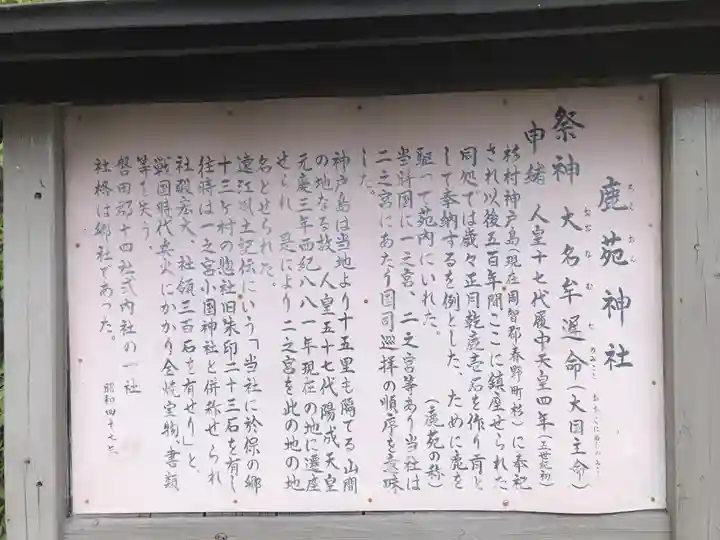 鹿苑神社
祭神 大名牟遅命(大国主命)
由緒 人皇十七代履中天皇四年(五世紀初)
杉村神戸島現在周智郡春野町杉)に奉祀
され以後五百年間ここに鎮座せられた
同処では歳々正月乾鹿壱石を作り肓と
して奉納するを例とした、ために鹿を
駆って苑内にいれた。(鹿苑の称)
当時国に一之宮、二之宮等あり当社は
二之宮にあたり国司巡拝の順序を意味
した。
神戸島は当地より十五里も隔てる山間
の地なる故、人皇五十七代陽成天皇
元慶三年西紀八八一年現在の地に遷座
せられ 是により二之宮を此の地の地
名とせられた。
遠江風土記伝にいう「当社に於保の郷
十三ヶ村の惣社旧朱印二十三石を有し
往時は一之宮小國神社と併称せられ
社殿宏大、社領三百石を有せり」と、
戦国時代兵火にかかり全焼宝物、書類
等を失う、
磐田郡十四社式内社の一社
社格は郷社であった。
昭和四十七年